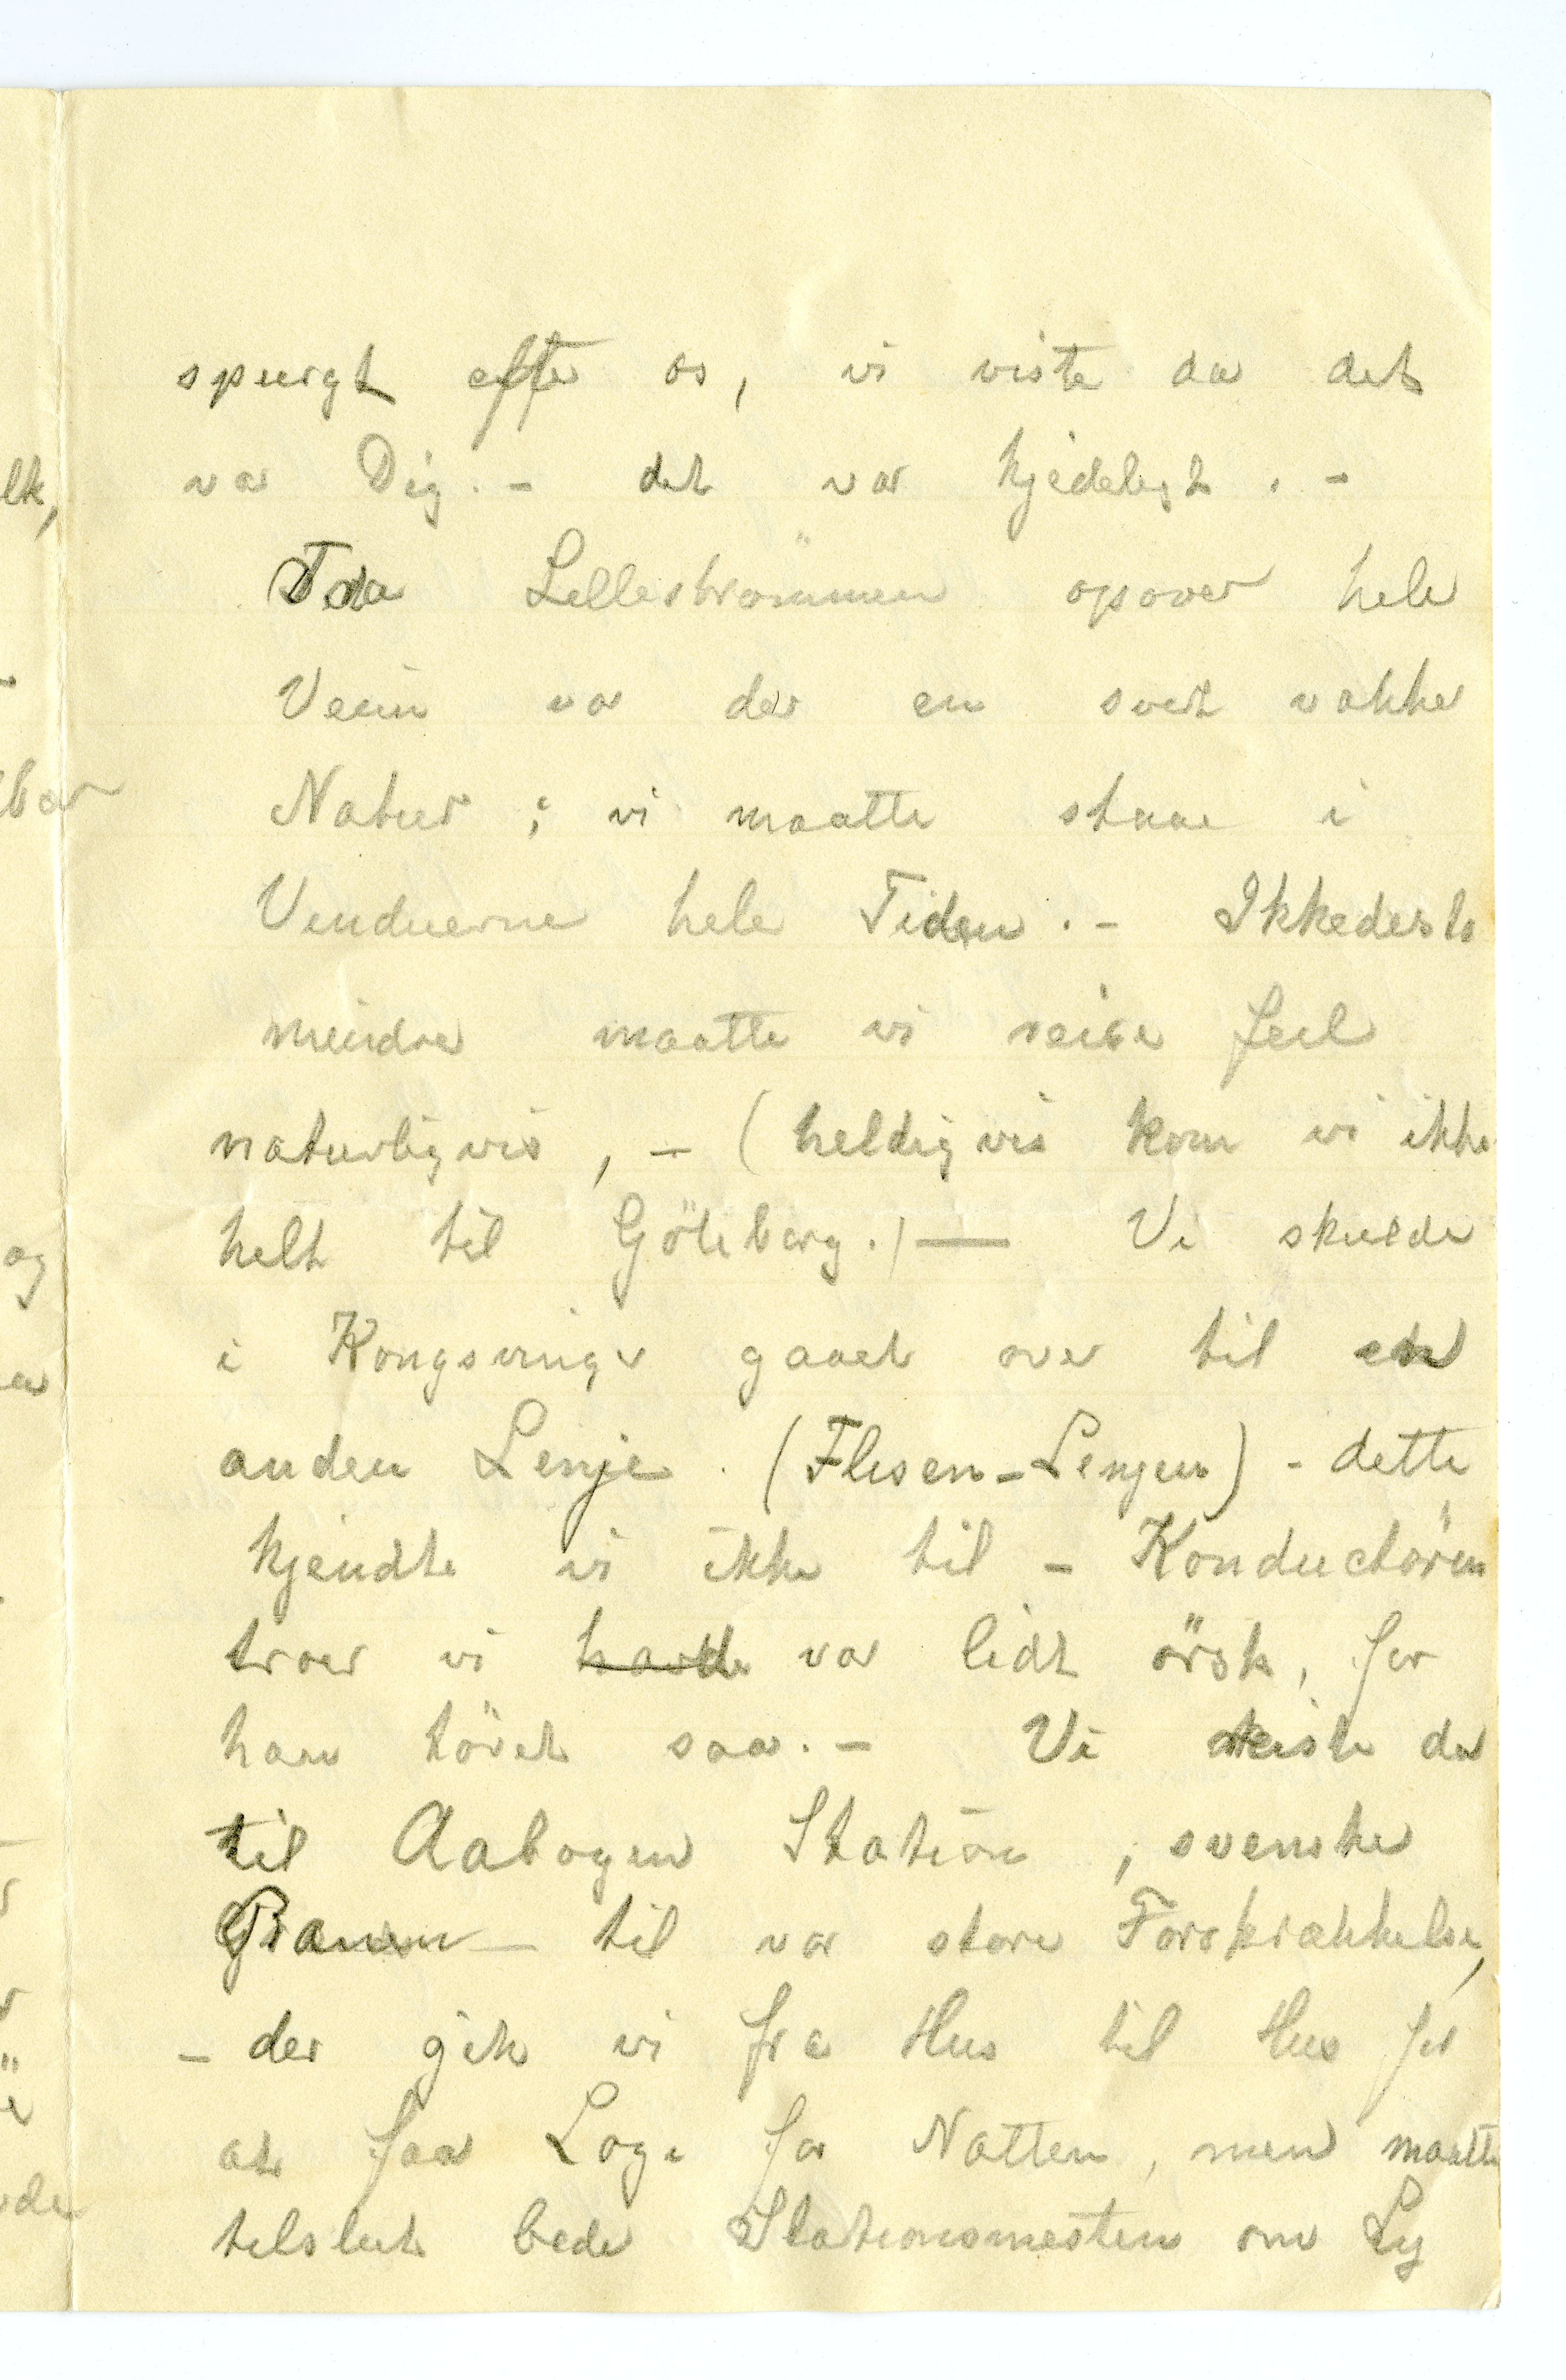 spurgt efter os, vi viste da det
var Dig. - det var kjedeligt. -
Fra Lilleströmmen opover hele
Veien var der en svert vakker
Natur; vi maatte staae i
Vinduerne hele Tiden. - Ikkedesto
mindre maatte vi reise feil
naturligvis, - (heldigvis kom vi ikke
helt til Göteborg.) — Vi skulde
i Kongsvinger gaaet over til en
anden Linje. (Flisen-Linjen) - dette
kjendte vi ikke til - Konductören
troer vi havde var lidt örsk, for
han töved saa. - Vi reiste da
til Aabogen Station, svenske
Grænsen - til vor store Forskrækkelse,
- der gik vi fra Hus til Hus for
at faa Logi for Natten, men maatte
tilslut bede Stationsmesteren om Ly
lk,
bar
og
de